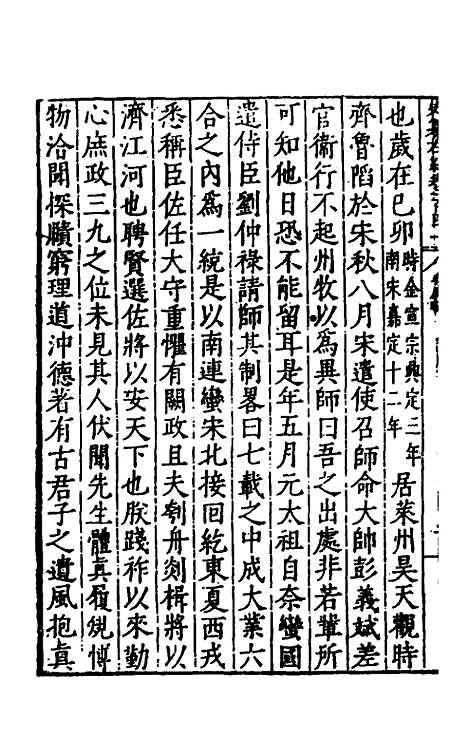 也歲在巳卯時金宣宗興定三年南宋嘉定十二年居萊州昊天觀時
齊魯陷於宋秋八月宋遣使召師命大帥彭義斌差
官衞行不起州牧以爲異師曰吾之出處非若輩所
可知他日恐不能留耳是年五月元太祖自奈蠻國
遣侍臣劉仲祿請師其制畧曰七載之中成大業六
合之內爲一統是以南連蠻宋北接回紇東夏西戎
悉稱臣佐任大守重懼有闕政且夫刳舟剡楫將以
濟江河也聘賢選佐將以安天下也朕踐祚以來勤
心庶政三九之位未見其人伏聞先生體真履䂓博
物洽聞探賾窮理道沖德著有古君子之遺風抱真